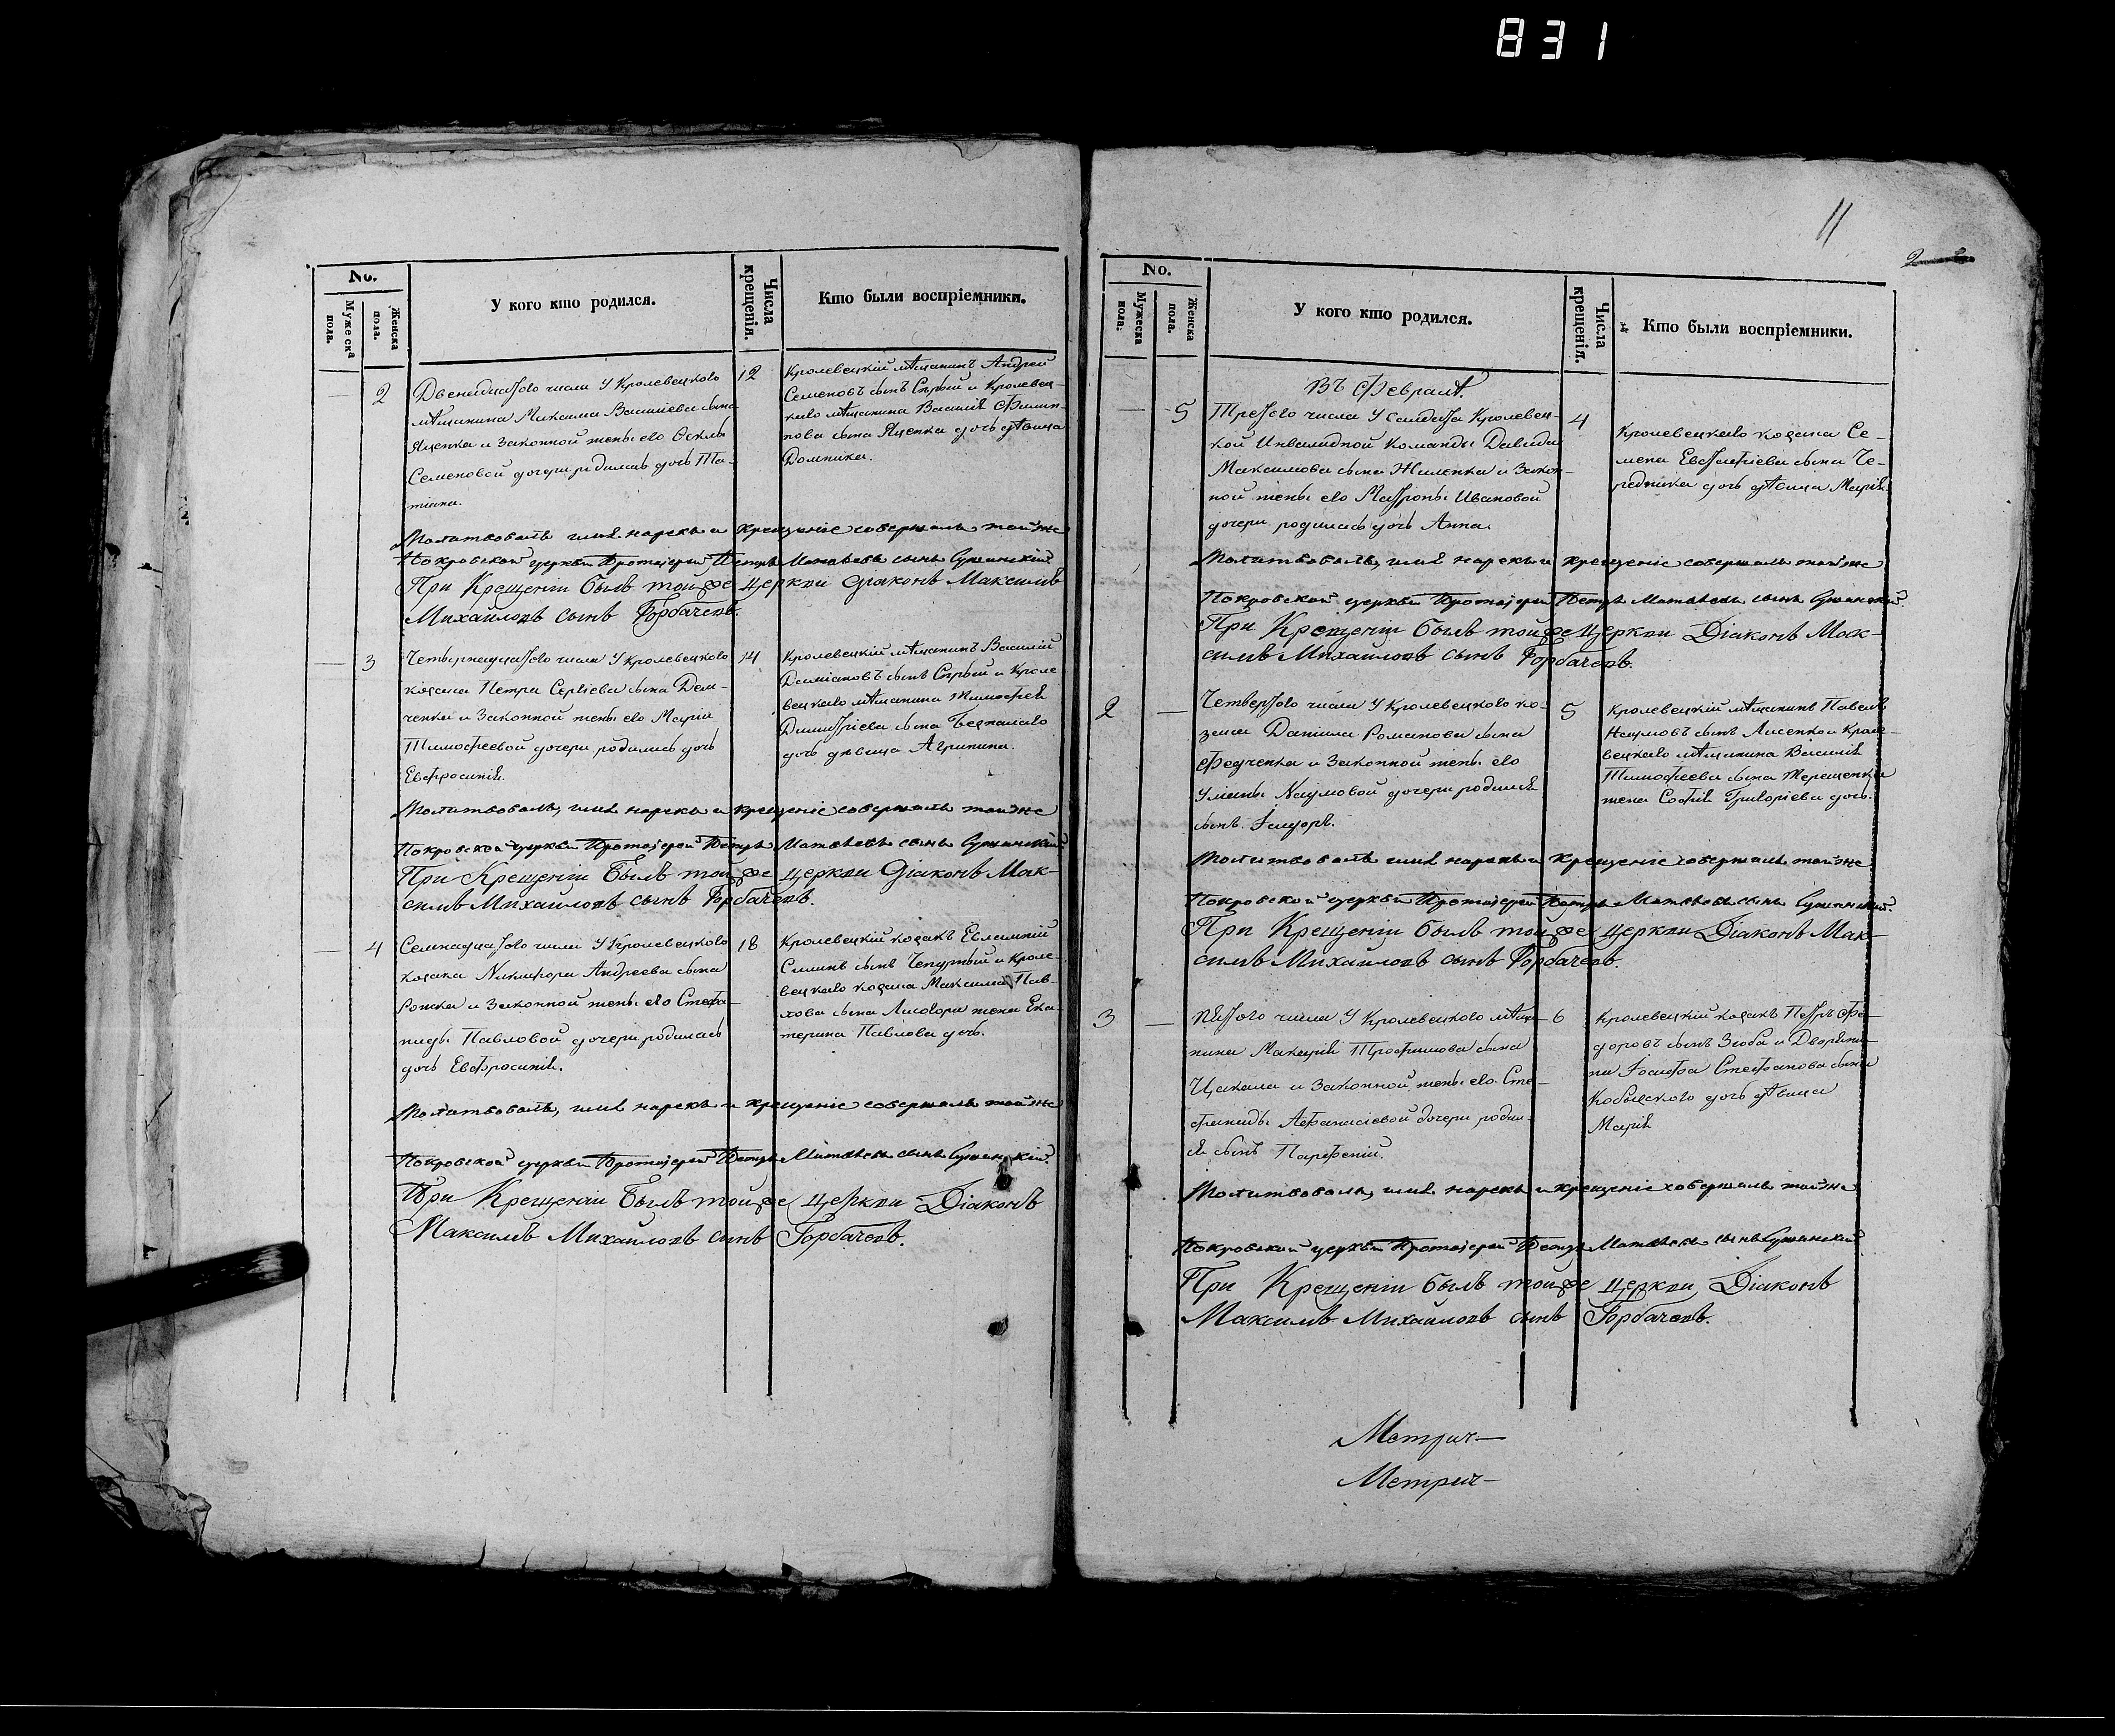 831
11
2
No.
Мужеска пола.
Женска пола.
У кого кто родился.
Числа крещенія.
Кто были воспріемники.
2
Двенадцатого числа У Кролевецкого
мѣщанина Михаила Василіева сына
Яценка и Законной жены его Ѳеклы
Семеновой дочери родилась дочь Та-
тіана.
12
Кролевецкій мѣщанинъ Андрей
Семеновъ сынъ Сѣрый и Кролевец
каго мѣщанина Василія Филип-
пова сына Яценка дочь дѣвица
Домникія.
Молитвовалъ имя нарекъ и крещеніе совершалъ той же
Покровской церкви Протоіерей Петръ Матвѣевъ сынъ
При Крещеніи былъ той же церкви діаконъ Максимъ
Михайловъ сынъ Горбачевъ.
3
Четвернадцатого числа У Кролевецкого
козака Петра Сергіева сына Дем-
ченка и Законной жены его Маріи
Тимофеевой дочери родилась дочь
Евфросинія.
14
Кролевецкій мѣщанинъ Василій
Даміановъ сынъ Сѣрый и Кроле
вецкаго мѣщанина Тимофея
Димитріева сына
дочь дѣвица Агрипина.
Молитвовалъ, имя нарекъ и крещеніе совершалъ той же
Покровской церкви Протоіерей Петръ Матвѣевъ сынъ
При Крещеніи былъ той же церкви Діаконъ Мак-
симъ Михайловъ сынъ Горбачевъ.
4
Семнадцатого числа У Кролевецкого
козака Никифора Андреева сына
Рожка и Законной жены его Стефа-
ниды Павловой дочери родилась
дочь Евфросинія.
18
Кролевецкій козакъ Евлампій
сынъ Чепурный и Кроле-
вецкаго козака Максима Пав-
лова сына Лисогора жена Ека-
терина Павлова дочь.
Молитвовалъ, имя нарекъ и крещеніе совершалъ той же
Покровской церкви Протоіерей Петръ Матвѣевъ сынъ
При Крещеніи былъ той же церкви Діаконъ
Максимъ Михайловъ сынъ Горбачевъ.
No.
Мужеска пола.
Женска пола.
У кого кто родился.
Числа крещенія.
Кто были воспріемники.
Въ Февралѣ.
5
Третого числа У Солдата Кролевец-
кой Инвалидной Команды Давида
Максимова сына Жиленка и Закон-
ной жены его Матроны Ивановой
дочери родилась дочь Анна.
4
Кролевецкаго козака Се-
мена Евстафіева сына Че-
редника дочь дѣвица Марія.
Молитвовалъ, имя нарекъ и крещеніе совершалъ той же
Покровской церкви Протоіерей Петръ Матвѣевъ сынъ
При Крещеніи былъ той же церкви Діаконъ Мак-
симъ Михайловъ сынъ Горбачевъ.
2
Четвертого числа У Кролевецкого ко-
зака Даніила Романова сына
Федченка и Законной жены его
Уліаны Наумовой дочери родился
сынъ Ісидоръ.
5
Кролевецкій мѣщанинъ Павелъ
Наумовъ сынъ Лисенко и Кроле-
вецкаго мѣщанина Василія
Тимофеева сына Терещенка
жена Софія Григоріева дочь.
Молитвовалъ имя нарекъ и крещеніе совершалъ той же
Покровской церкви Протоіерей Петръ Матвѣевъ сынъ
При Крещеніи былъ той же церкви Діаконъ Мак-
симъ Михайловъ сынъ Горбачевъ.
3
Пятого числа У Кролевецкого мѣща-
нина Макарія Трофимова сына
Цакала и Законной жены его Сте-
фаниды Афанасіевой дочери родил-
ся сынъ Парфеній.
6
Кролевецкій козакъ Петръ Фе-
доровъ сынъ Зюба и Дворяни-
на Іосифа Стефанова сына
дочь дѣвица
Марія
Молитвовалъ, имя нарекъ и крещеніе совершалъ той же
Покровской церкви Протоіерей Петръ Матвѣевъ сынъ
При Крещеніи былъ той же церкви Діаконъ
Максимъ Михайловъ сынъ Горбачевъ.
Метрич-
Метрич-